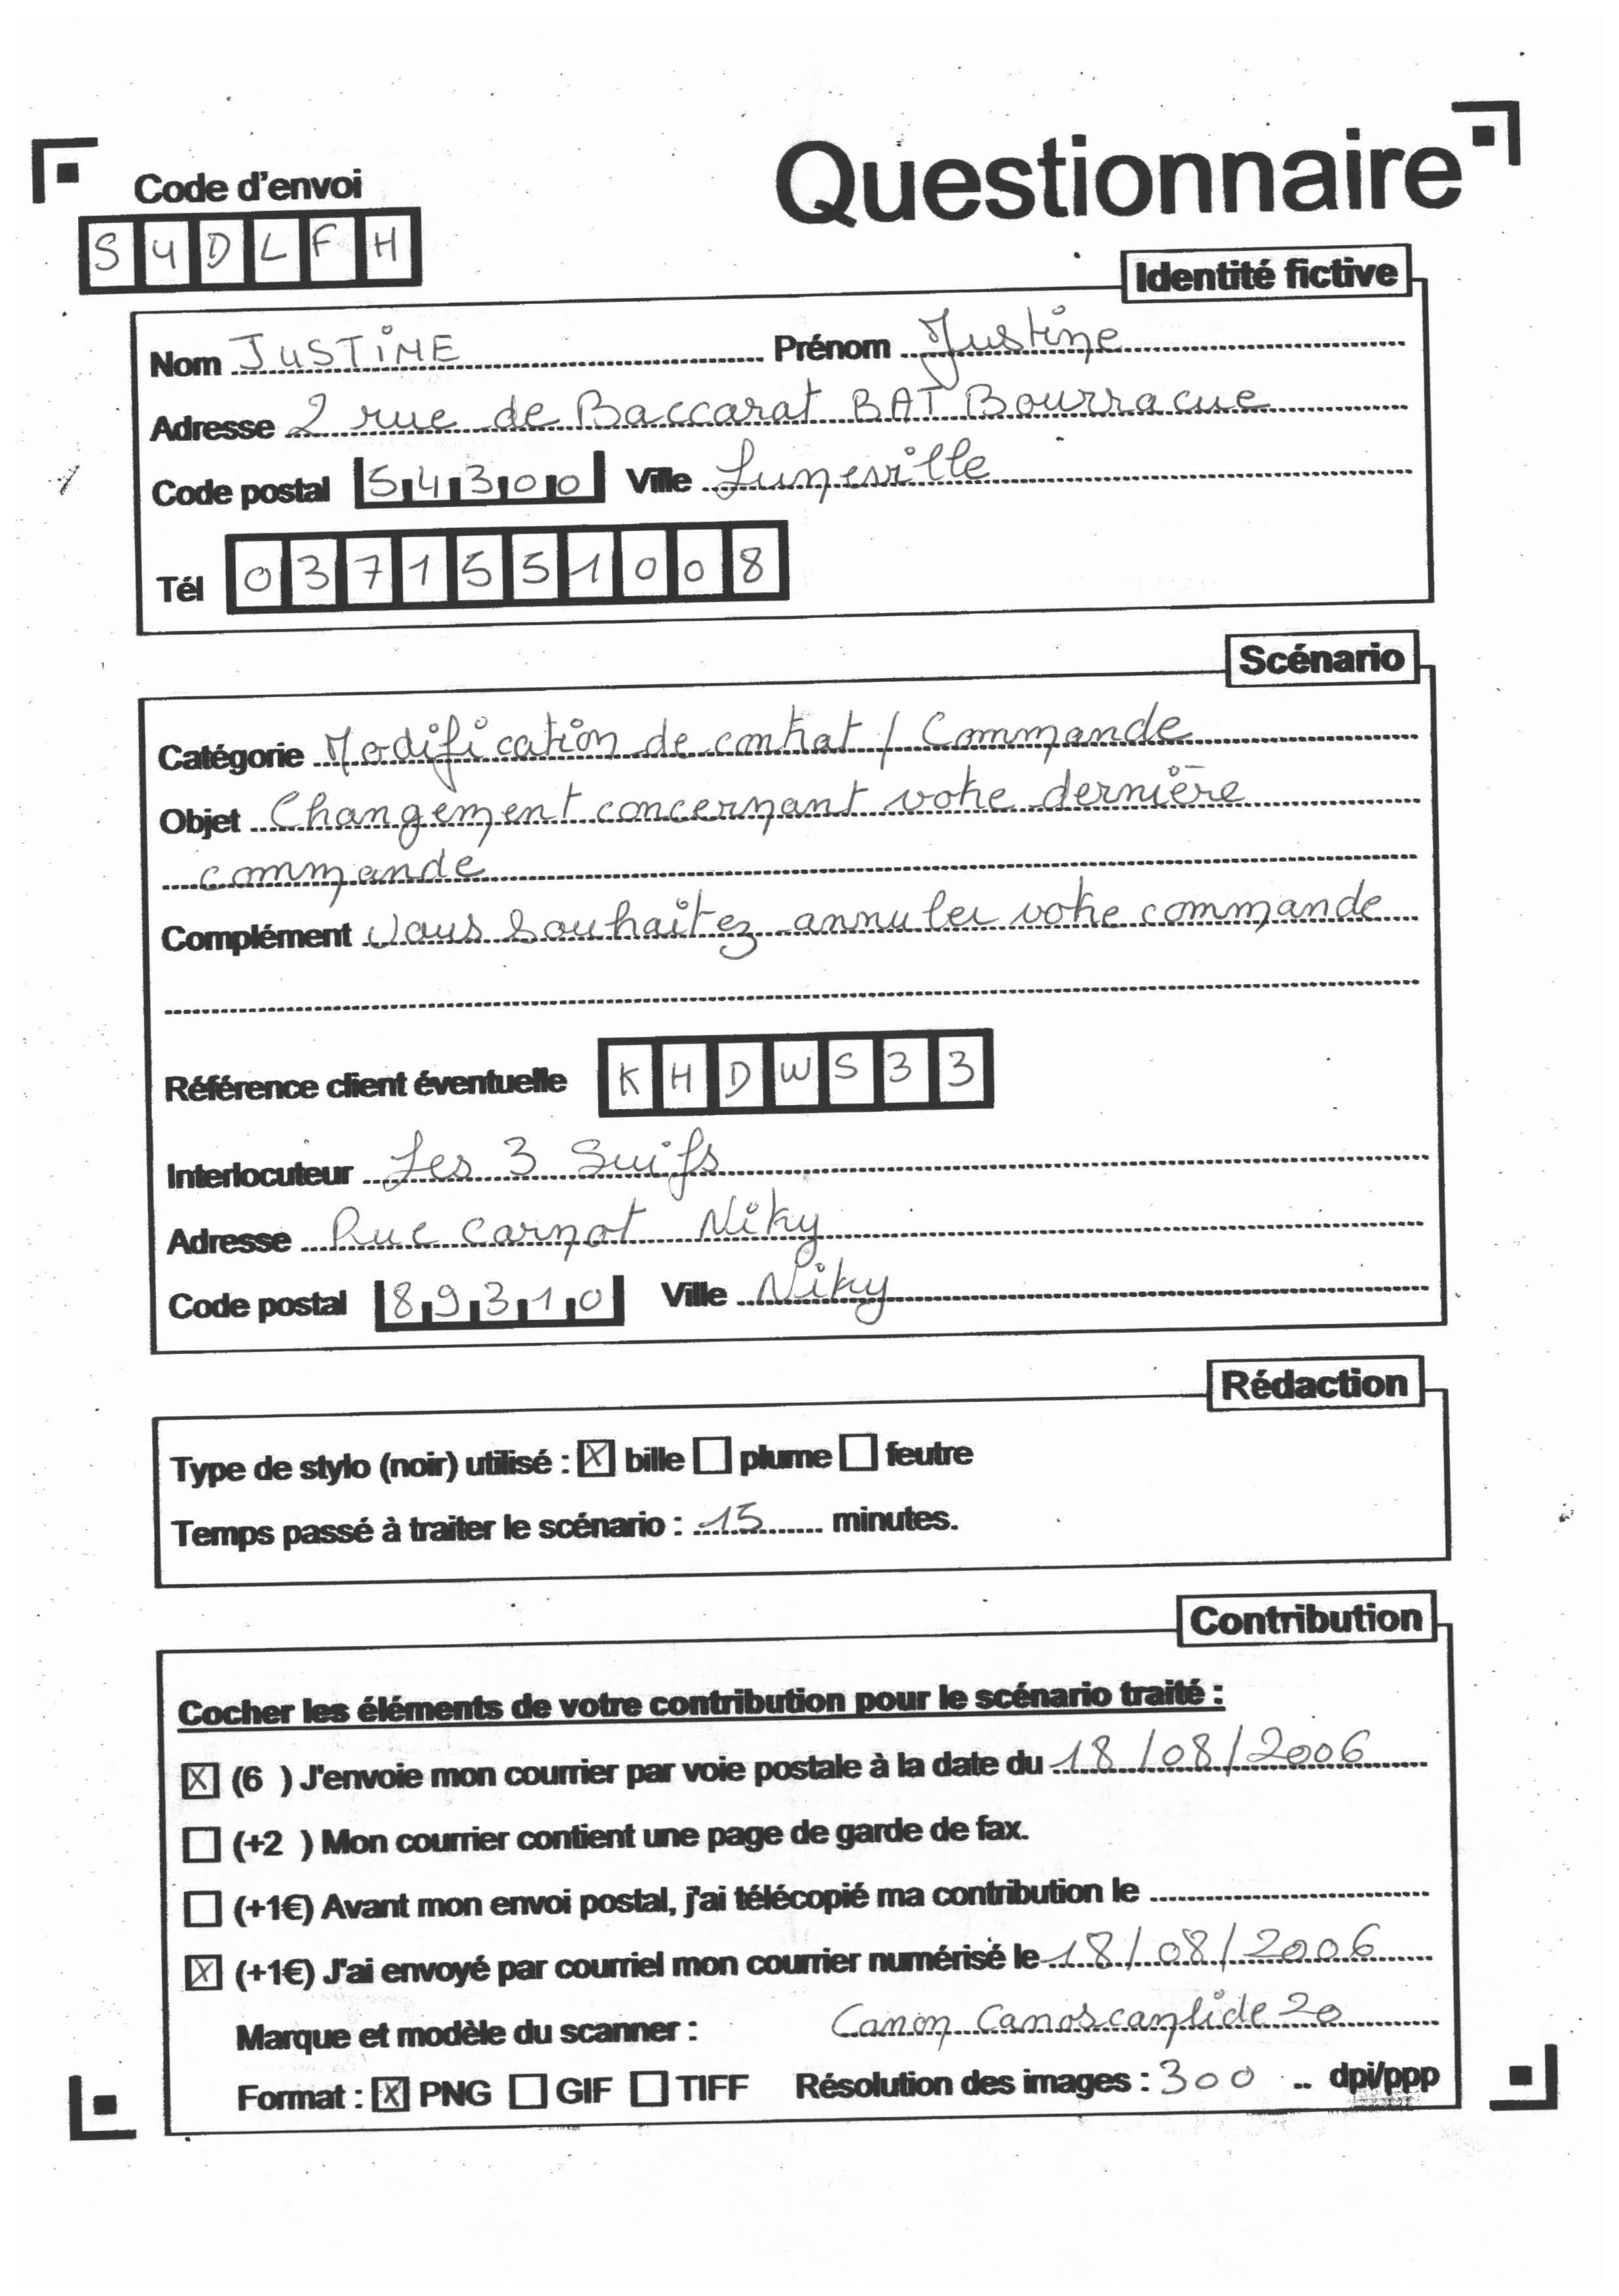 Questionnaire
Code d'envoi
S4DLFH
Identité fictive
Nom JUSTINE Prénom Justine
Adresse 2 rue de Baccarat BAT Bourracue
Code postal 54300 Ville Luneville
Tél 0371551008
Scénario
Catégorie Modification de contrat / Commande
Objet Changement concernant votre dernière
commande
Complément Vous souhaitez annuler votre commande
Référence client éventuelle KHDWS33
Interlocuteur Les 3 Suifs
Adresse Rue Carnot Niky
Code postal 89310 Ville Niky
Rédaction
Type de stylo (noir) utilisé : ☒ bille ☐ plume ☐ feutre
Temps passé à traiter le scénario : 15 minutes.
Contribution
Cocher les éléments de votre contribution pour le scénario traité :
☒ (6 ) J'envoie mon courrier par voie postale à la date du 18/08/2006
☐ (+2 ) Mon courrier contient une page de garde de fax.
☐ (+1€) Avant mon envoi postal, j'ai télécopié ma contribution le
☒ (+1€) J'ai envoyé par courriel mon courrier numérisé le 18/08/2006
Marque et modèle du scanner : Canon Canoscanlide 20
Format : ☒ PNG ☐ GIF ☐ TIFF Résolution des images : 300 .. dpi/ppp